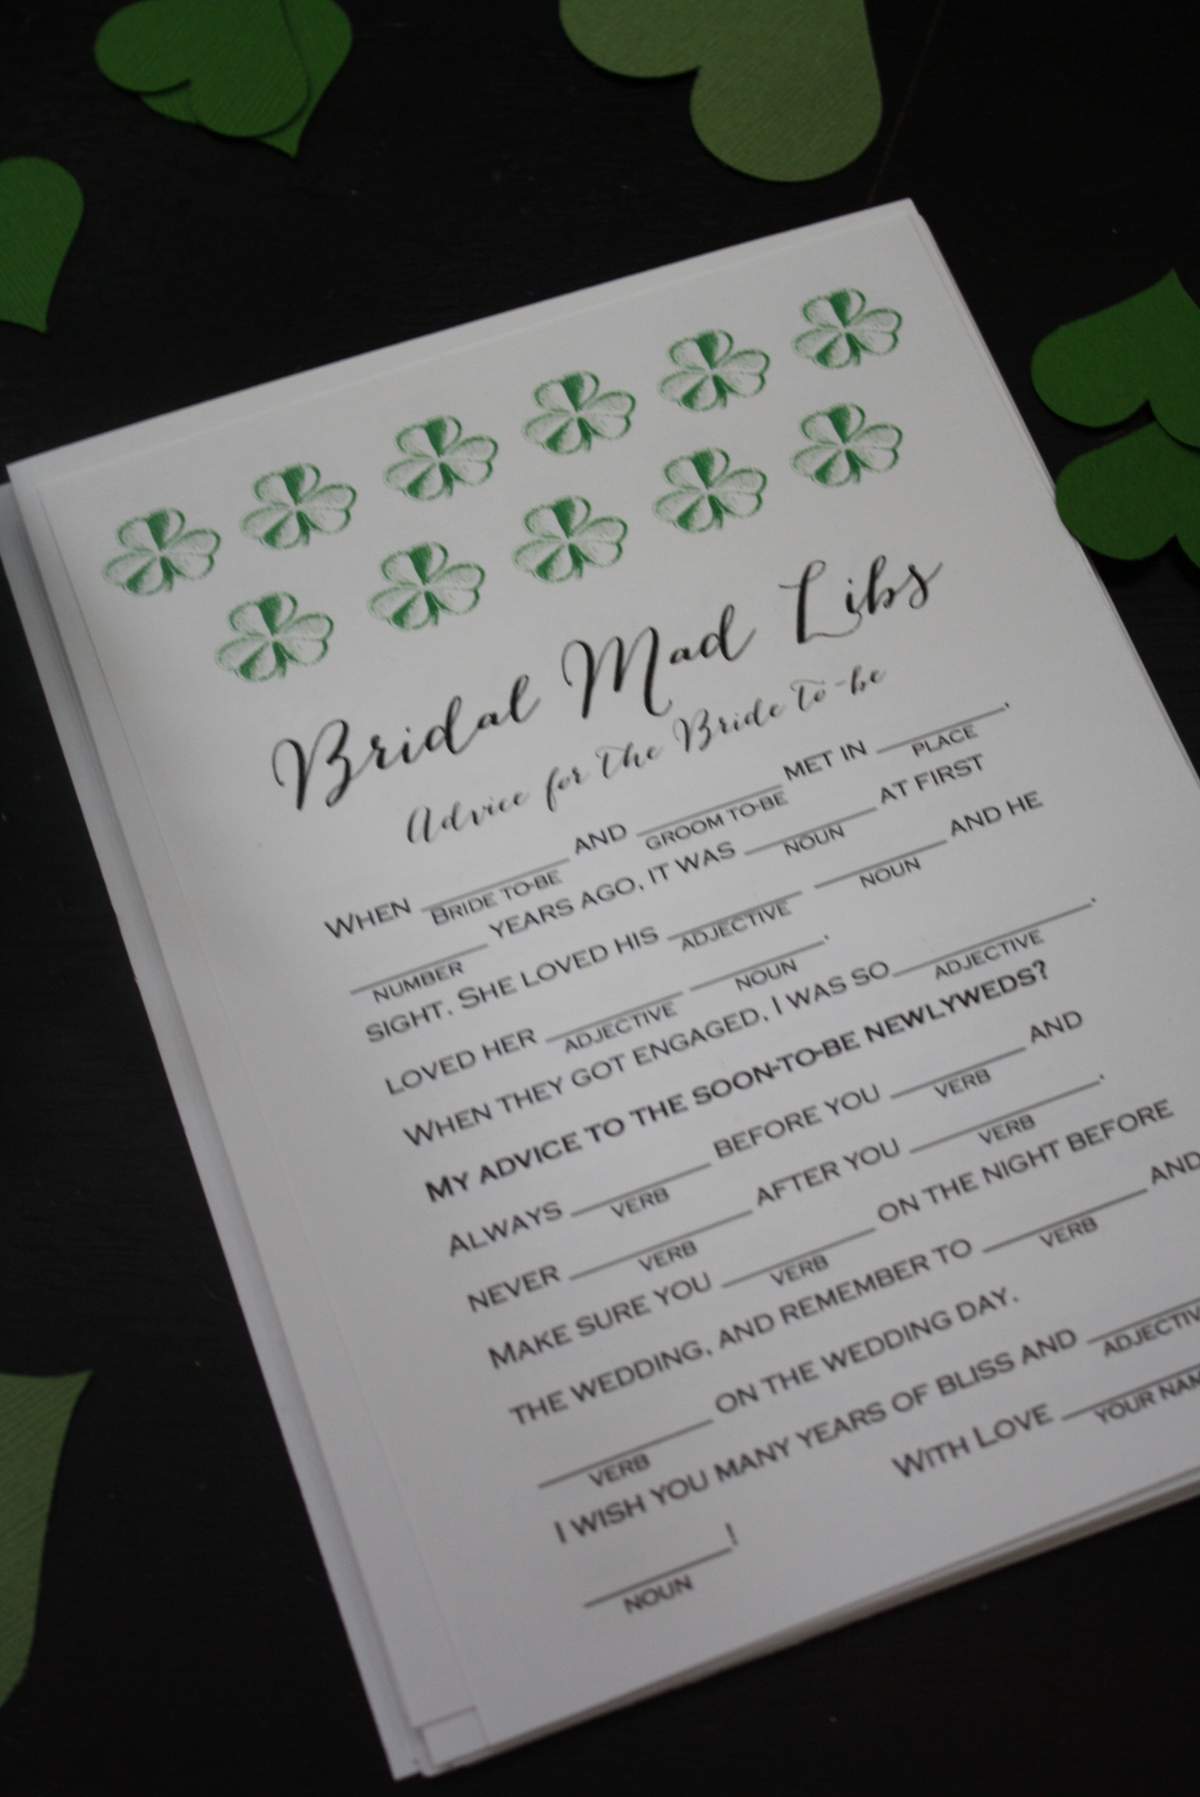 Bridal Mad Libs
Advice for the Bride to-be
WHEN ________ AND ________ MET IN ________.
BRIDE TO-BE GROOM TO-BE PLACE
________ YEARS AGO, IT WAS ________ AT FIRST
NUMBER NOUN
SIGHT. SHE LOVED HIS ________ ________ AND HE
ADJECTIVE NOUN
LOVED HER ________ ________.
ADJECTIVE NOUN
WHEN THEY GOT ENGAGED, I WAS SO ________.
ADJECTIVE
MY ADVICE TO THE SOON-TO-BE NEWLYWEDS?
ALWAYS ________ BEFORE YOU ________ AND
VERB VERB
NEVER ________ AFTER YOU ________.
VERB VERB
MAKE SURE YOU ________ ON THE NIGHT BEFORE
VERB
THE WEDDING, AND REMEMBER TO ________ AND
VERB
________ ON THE WEDDING DAY.
VERB
I WISH YOU MANY YEARS OF BLISS AND ________
ADJECTIV
________!
NOUN
WITH LOVE ________
YOUR NAM